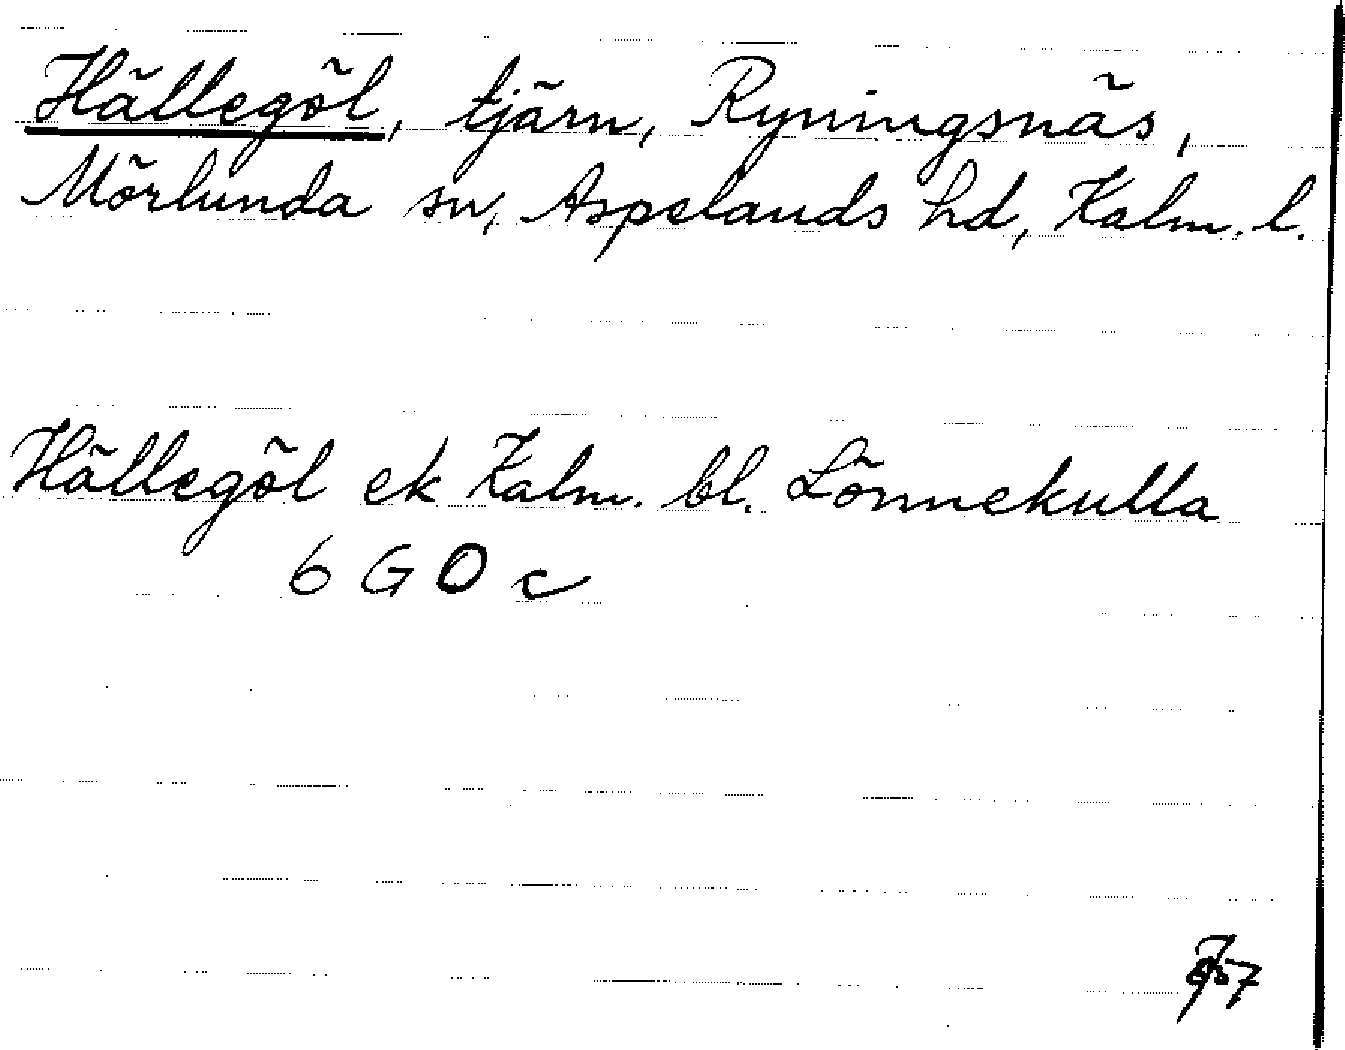 Hällegöl, tjärn, Ryningsnäs,
Mörlunda sn, Aspelands hd, Kalm. l.
Hällegöl ek Kalm. bl. Lönnekulla
6 G O c